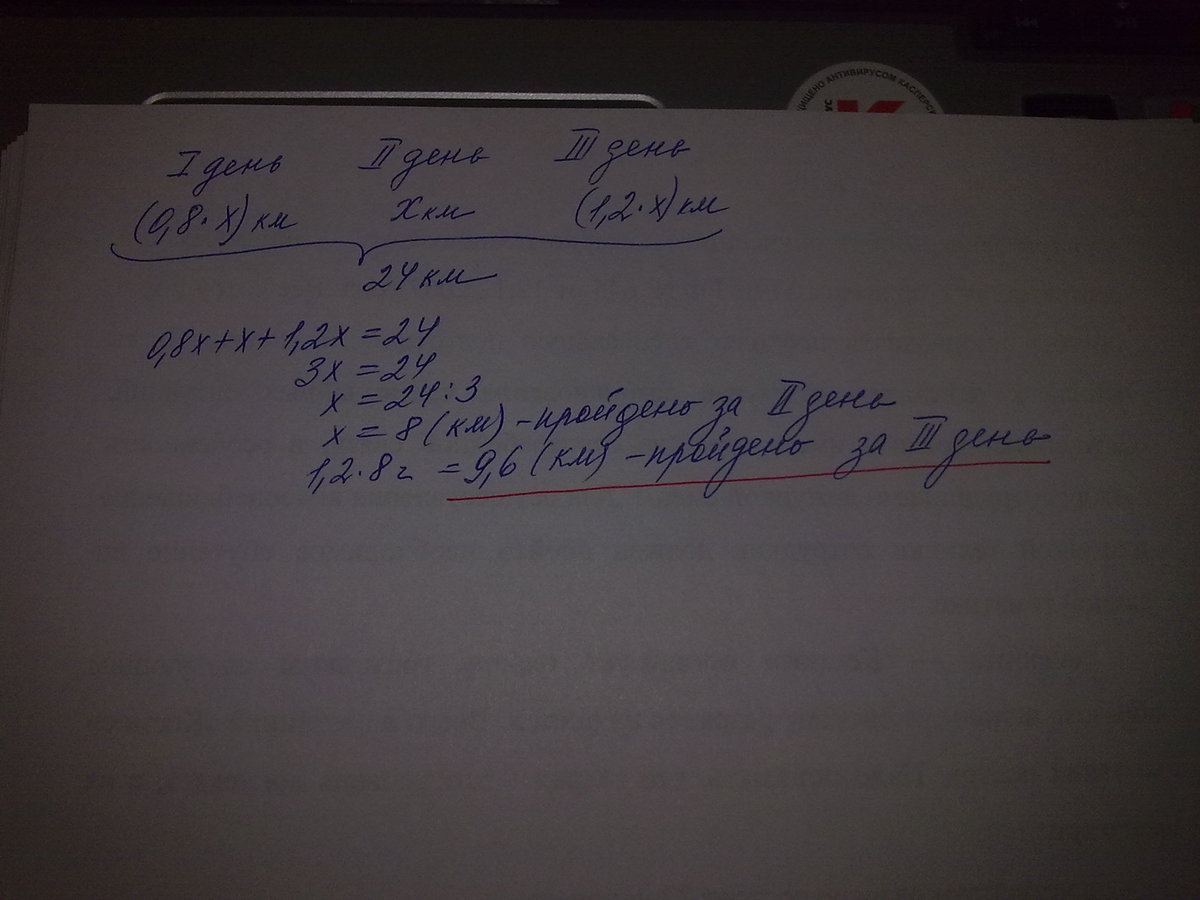 ЩИЩЕНО АНТИВИРУСОМ КАСПЕРС
I день II день III день
(0,8·x) км x км (1,2·x) км
24 км
0,8x+x+1,2x = 24
3x = 24
x = 24:3
x = 8 (км) – пройдено за II день
1,2·8 = 9,6 (км) – пройдено за III день